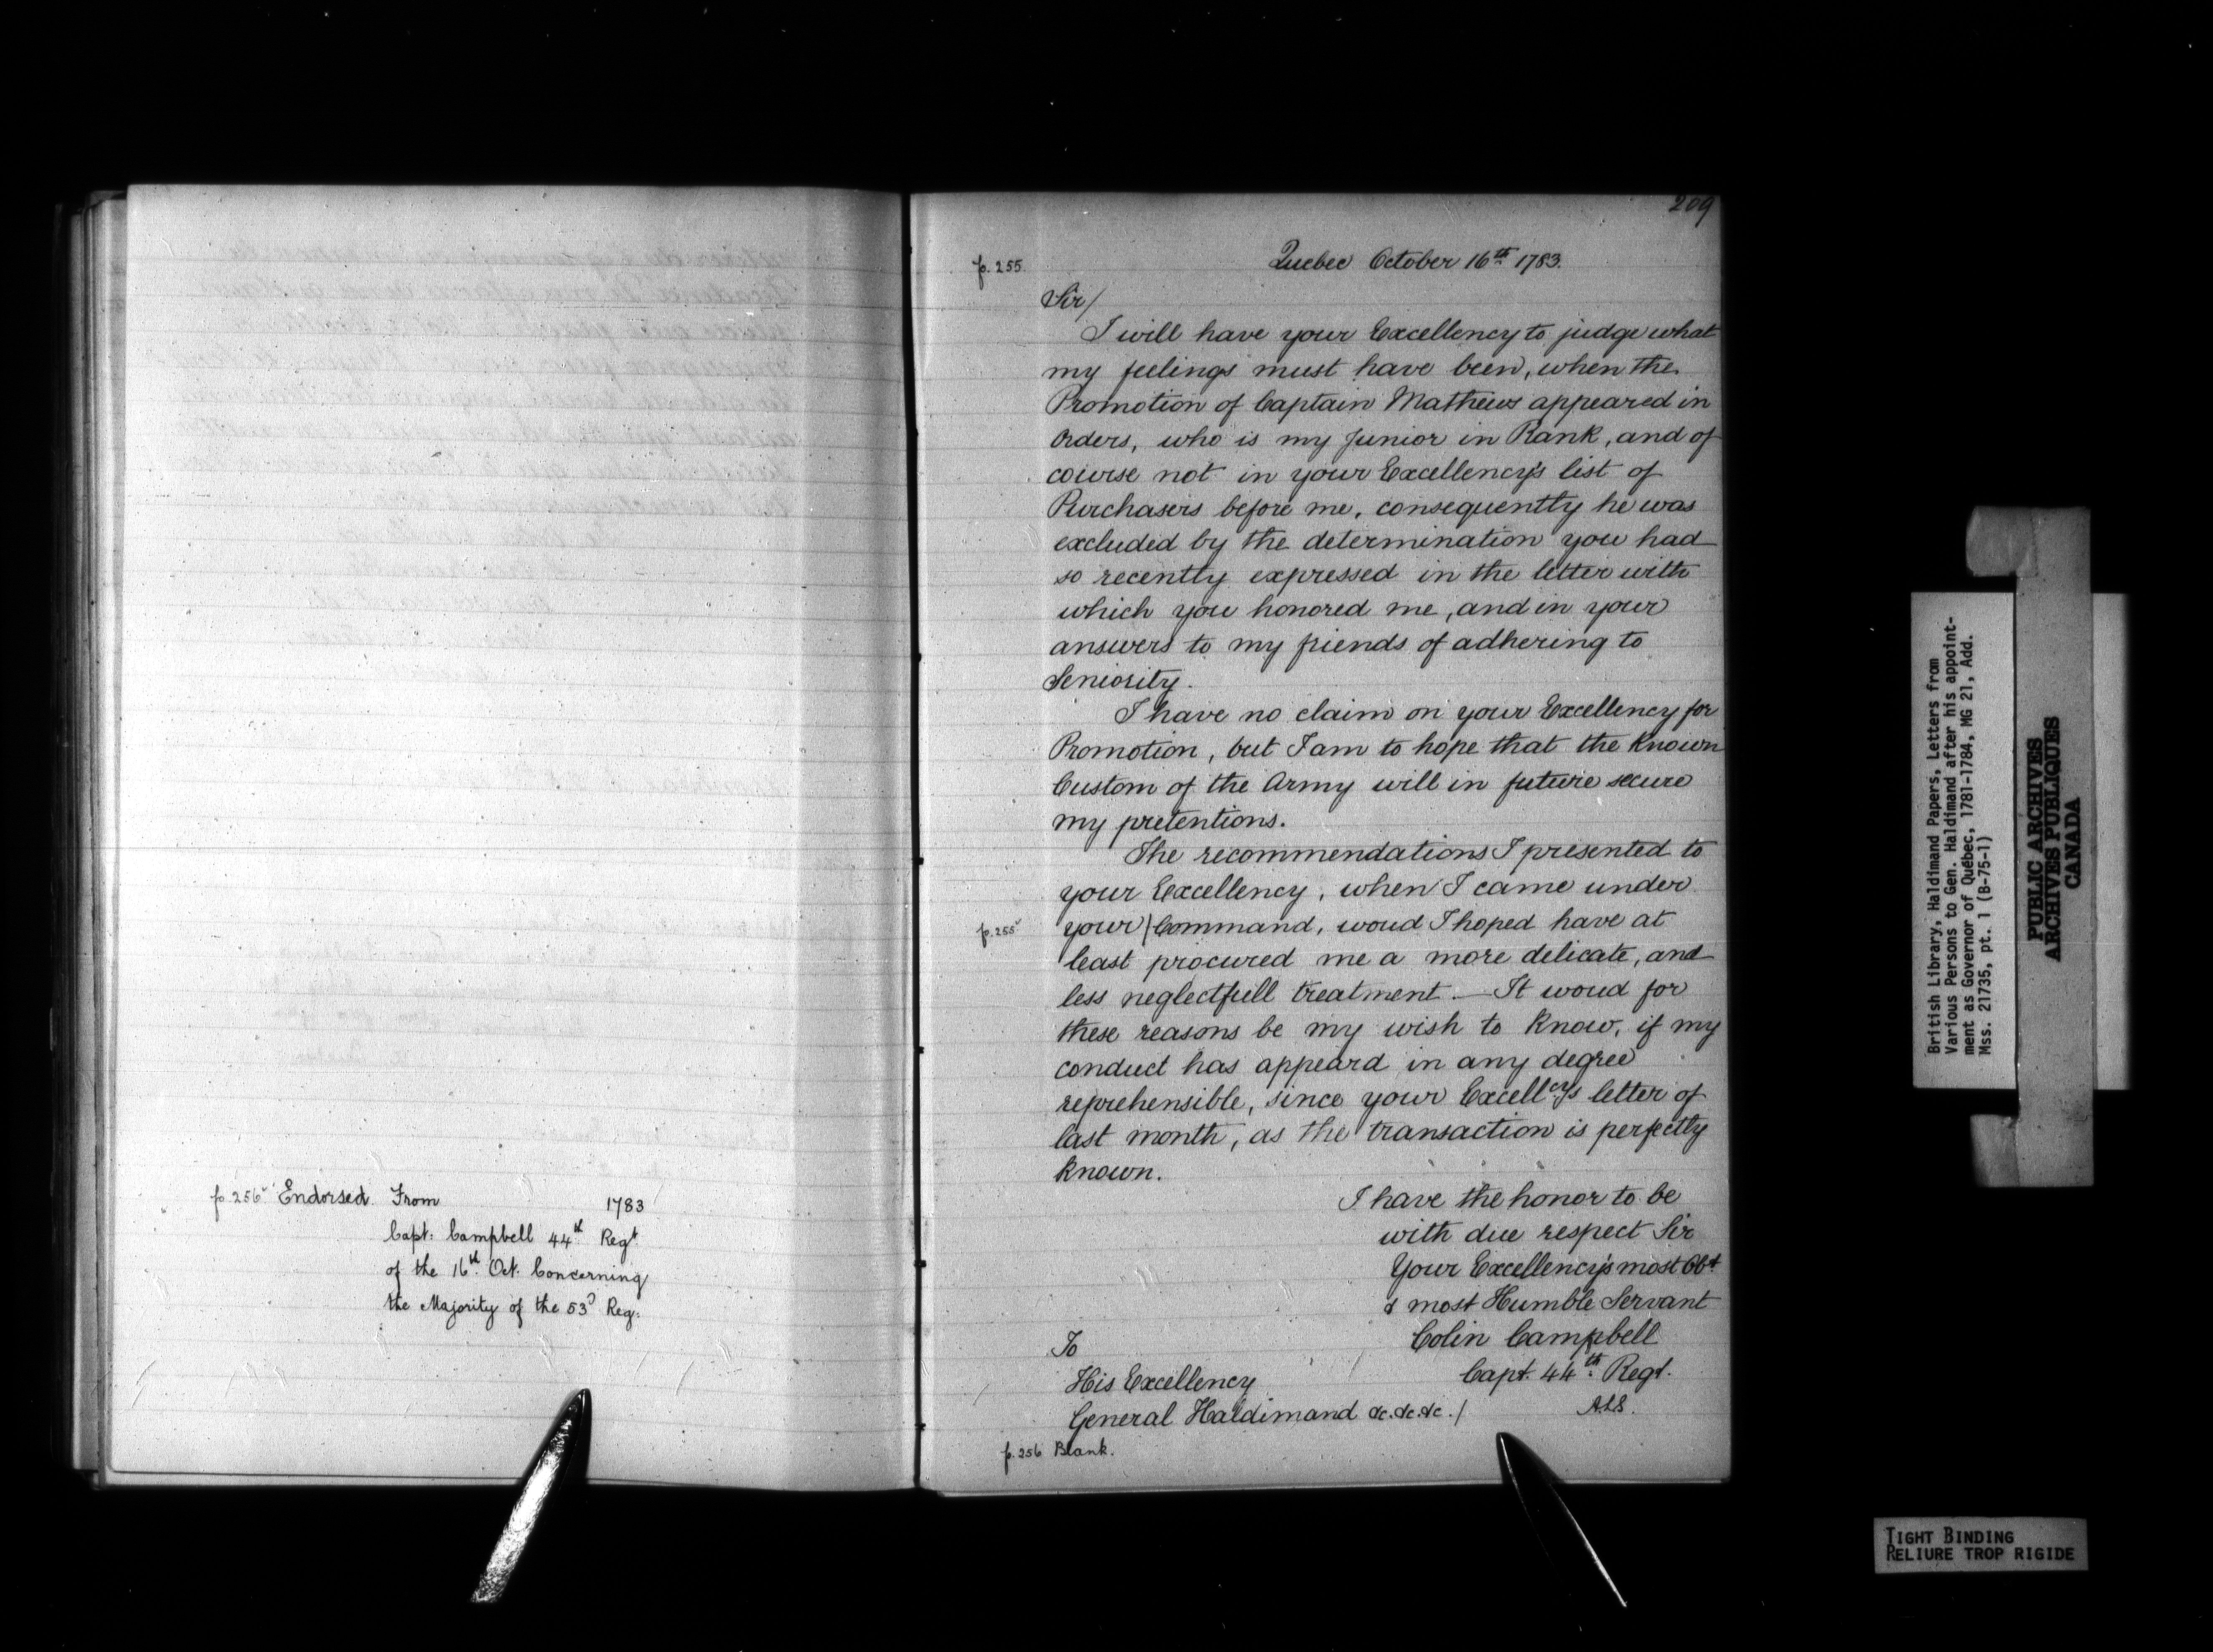 209
p. 255 Quebec October 16th 1783.
Sir/
I will have your Excellency to judge what
my feelings must have been, when the
Promotion of Captain Mathews appeared in
Orders, who is my Junior in Rank, and of
course not in your Excellency's list of
Purchasers before me, consequently he was
excluded by the determination you had
so recently expressed in the letter with
which you honored me, and in your
answers to my friends of adhering to
Seniority.
I have no claim on your Excellency for
Promotion, but I am to hope that the Known
Custom of the Army will in future secure
my pretentions.
The recommendations I presented to
your Excellency, when I came under
p. 255v your/Command, woud I hoped have at
least procured me a more delicate, and
less neglectfull treatment. — It woud for
these reasons be my wish to Know, if my
conduct has appeard in any degree
reprehensible, since your Excellcys letter of
last month, as the transaction is perfectly
Known.
I have the honor to be
with due respect Sir
Your Excellency's most Obt
& most Humble Servant
Colin Campbell
Capt. 44th Regt.
A.L.S.
To
His Excellency
General Haldimand &c. &c. &c. /
p. 256 Blank.
p. 256v Endorsed. From 1783
Capt: Campbell 44th Regt.
of the 16th Oct. Concerning
the Majority of the 53d Reg:
British Library, Haldimand Papers, Letters from
Various Persons to Gen. Haldimand after his appoint-
ment as Governor of Québec, 1781-1784, MG 21, Add.
Mss. 21735, pt. 1 (B-75-1)
PUBLIC ARCHIVES
ARCHIVES PUBLIQUES
CANADA
TIGHT BINDING
RELIURE TROP RIGIDE